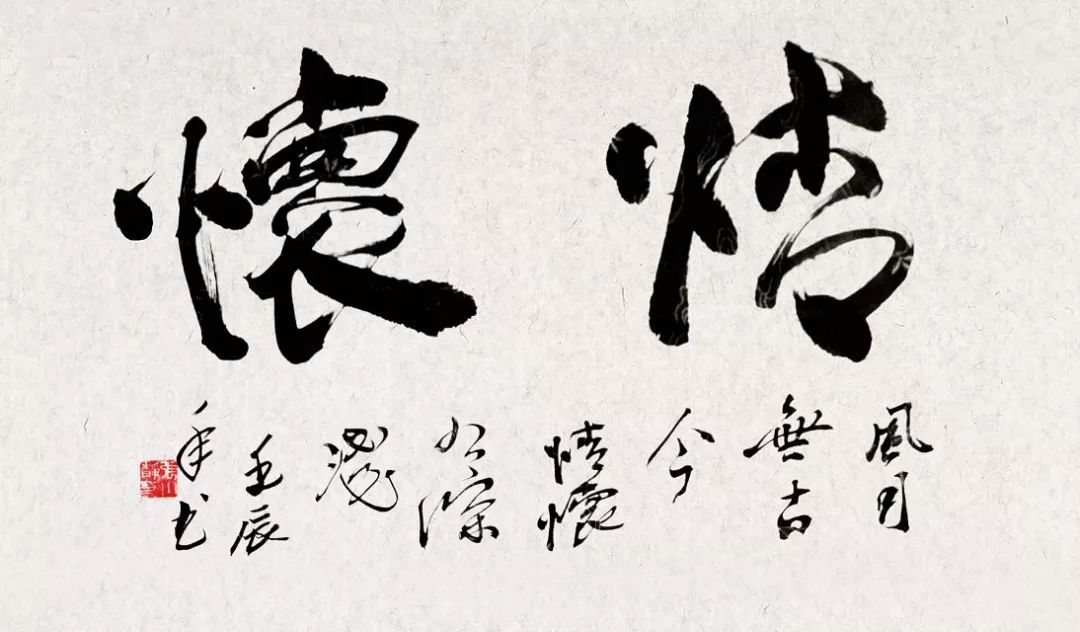 情懷
風月
無古
今
情懷
自深
淺
壬辰
年书